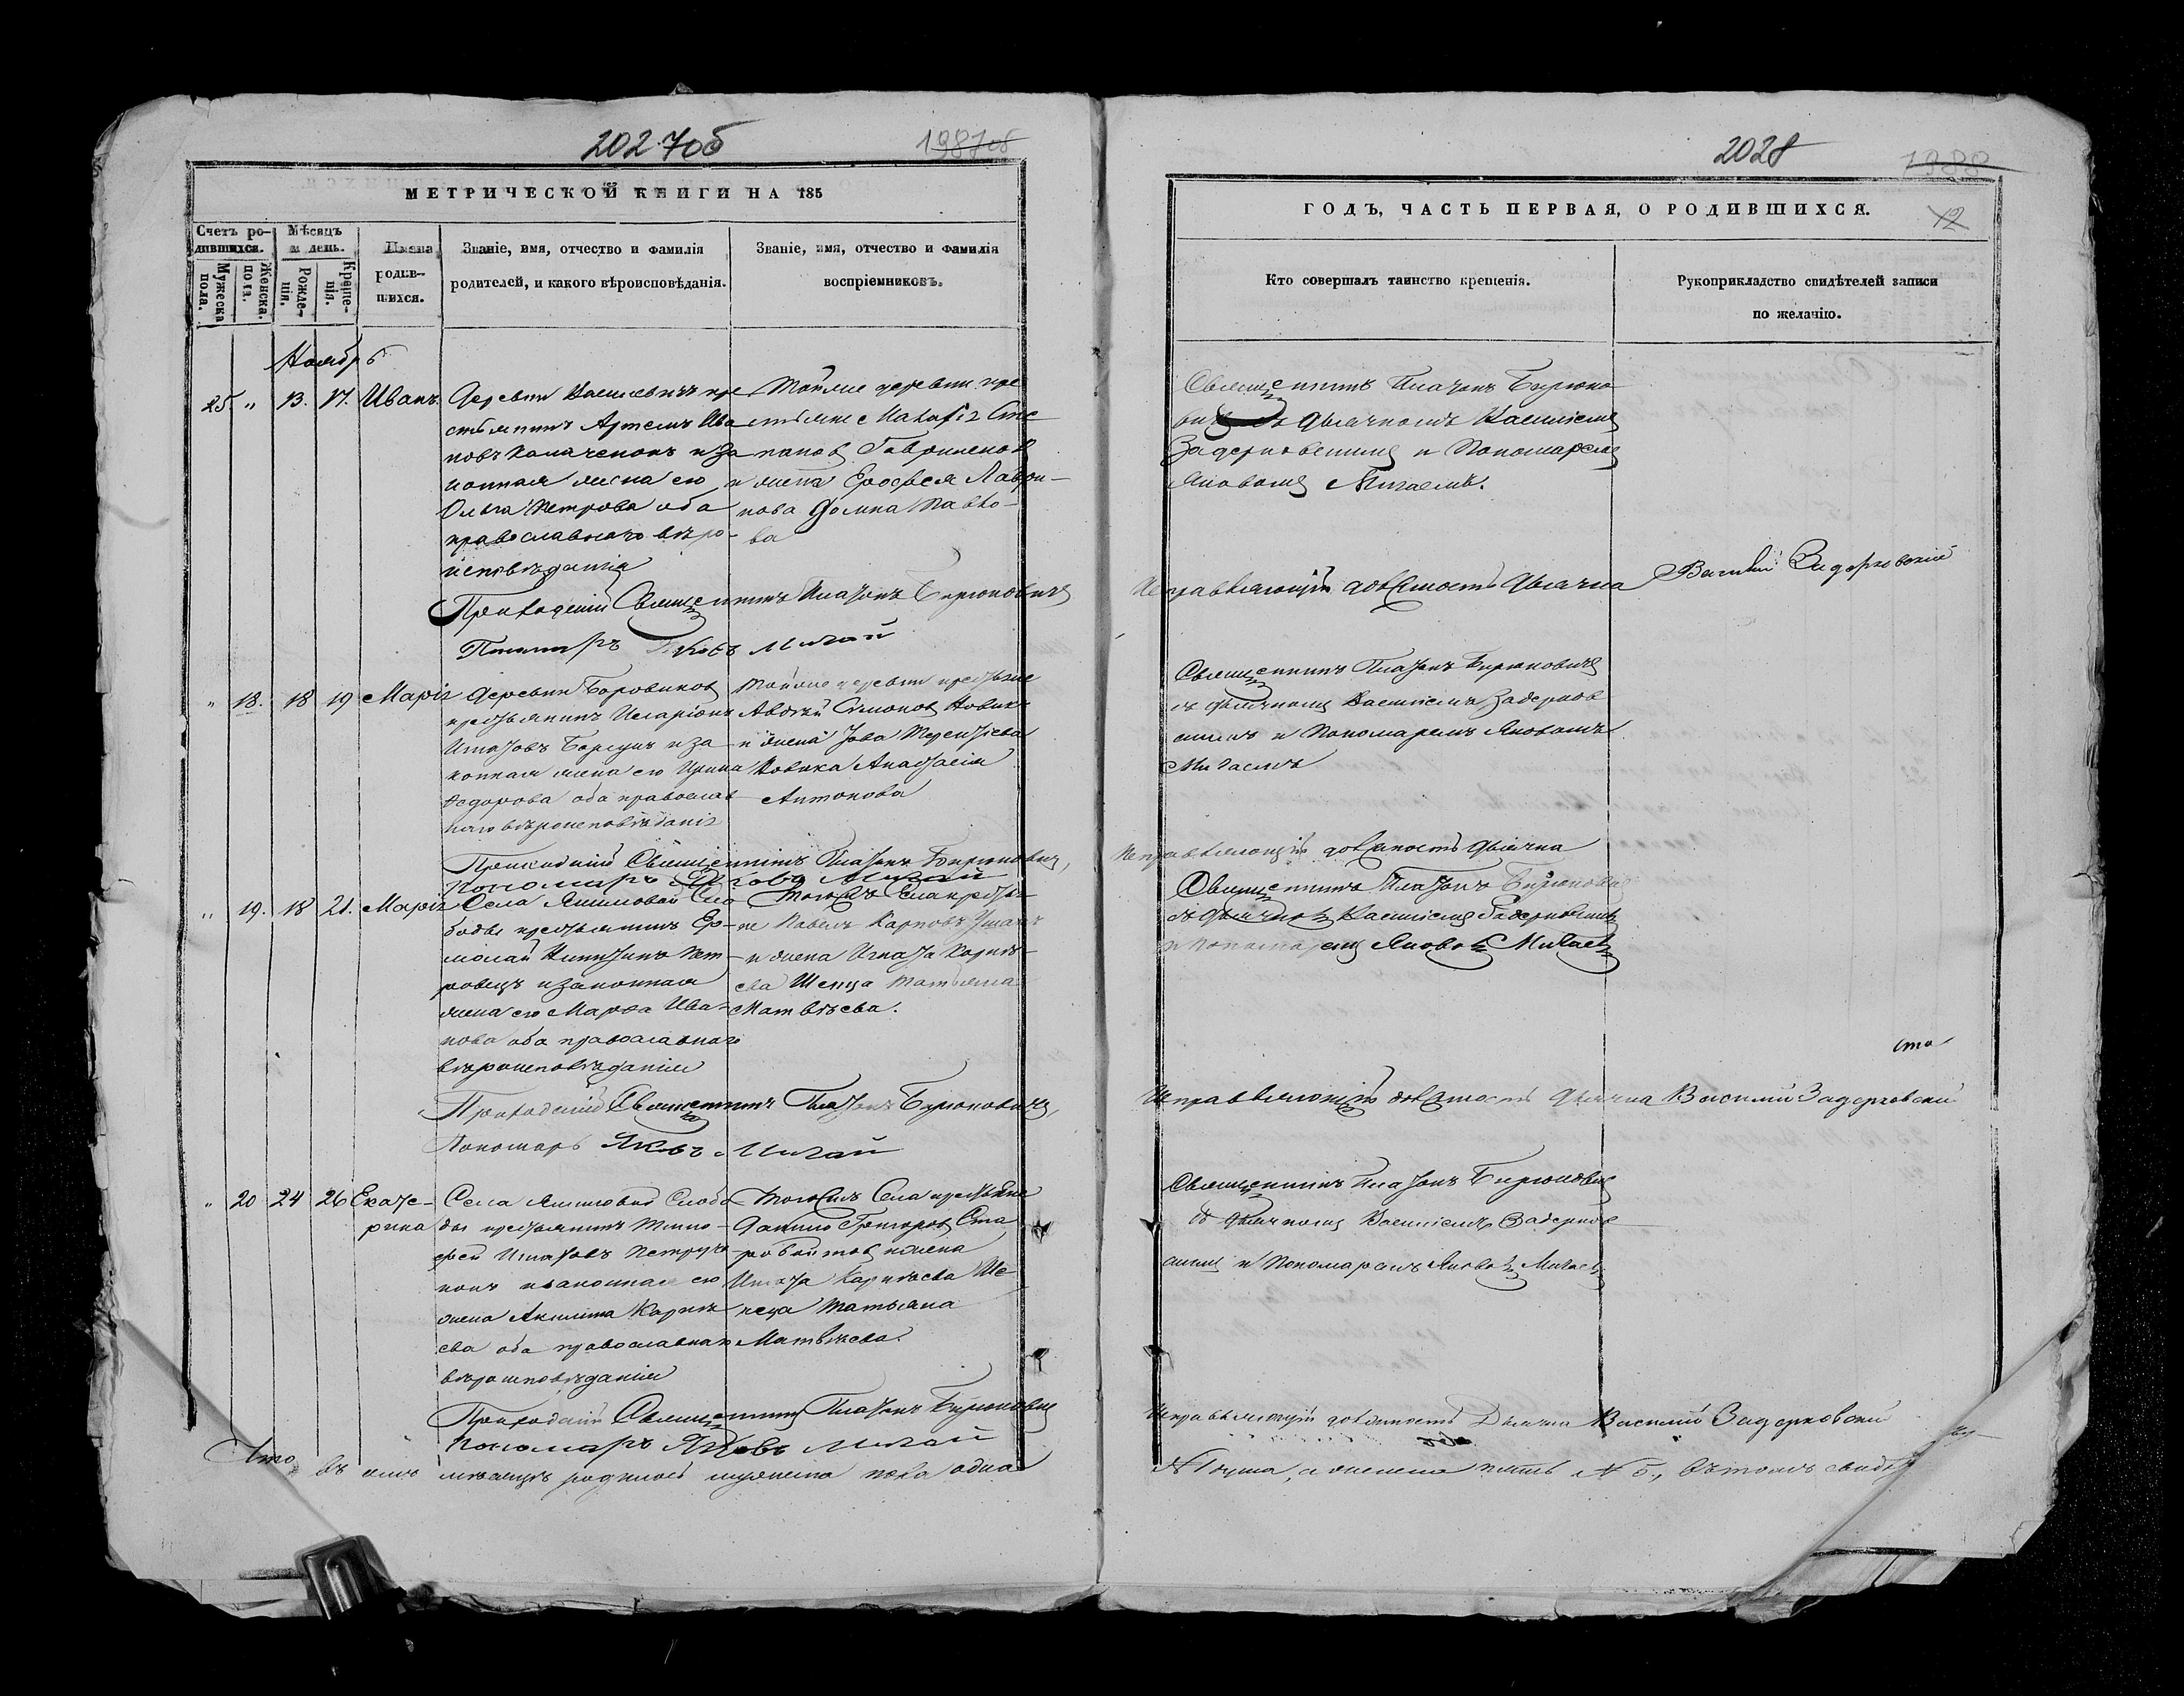 2027об
1987об
МЕТРИЧЕСКОЙ КНИГИ НА 185
Счетъ ро-
дившихся.
Мѣсяцъ
и день.
Имена
родив-
шихся.
Званіе, имя, отчество и фамилія
родителей, и какого вѣроисповѣданія.
Званіе, имя, отчество и фамилія
воспріемниковъ.
Мужеска
пола.
Женска.
пола.
Рожде-
нія.
Креще-
нія.
Ноябрь
25. " 13. 17. Иванъ.
Деревни Василевичъ кре
стьянинъ Артемъ Ива
новъ и за
конная жена его
Ольга Петрова оба
православнаго вѣро-
исповѣданія
Тойже деревни кре
стьяне
и жена Ерофея Лаври-
нова Домна Павло-
ва
Приходскій Священникъ Платонъ Бирюковичъ
Пономаръ Яковъ Мигай
" 18. 18 19 Марія
Деревни Боровиковъ
крестьянинъ Иларіонъ
Игнатовъ и за
конная жена его Ирина
Федорова оба православ
наго вѣроисповѣданія
Тойже деревни крестьяне
Авдѣй Симоновъ Новикъ
и жена Іова Терентіева
Новика Анастасія
Антонова
Приходскій Священникъ Платонъ Бирюковичъ,
Пономаръ Яковъ Мигай
" 19. 18 21. Марія
Села Якимовой Сло
боды крестьянинъ Ер-
молай Никитинъ Пет-
ровецъ и законная
жена его Марѳа Ива-
нова оба православнаго
вѣроисповѣданія
Тогожъ Села крестья-
не Павелъ Карповъ
и жена Игната Корнѣ-
ева Шепца Татьяна
Матвѣева.
Приходскій Священникъ Платонъ Бирюковичъ,
Пономарь Яковъ Мигай
" 20 24 26 Екате-
рина
Села Якимовой Слобо
ды крестьянинъ Тимо-
фей Игнатовъ
и законная его
жена Акилина Корнѣ
ева оба православнаго
вѣроисповѣданія
Тогожъ Села крестьяне
Данило Григоровъ Ста
и жена
Игната Корнѣева Ше
пеца Татьяна
Матвѣева.
Приходскій Священникъ Платонъ Бирюковичъ
Пономаръ Яковъ Мигай
Что въ семъ мѣсяцѣ родилось мужеска пола одна
2028
1988
12
ГОДЪ, ЧАСТЬ ПЕРВАЯ, О РОДИВШИХСЯ.
Кто совершалъ таинство крещенія.
Рукоприкладство свидѣтелей записи
по желанію.
Священникъ Платонъ Бирюко
вичъ съ дьячкомъ Василіемъ
Задерковскимъ и Пономаремъ
Яковомъ Мигаемъ.
Исправляющій должность дьячка Василий Задерковскій
Священникъ Платонъ Бирюковичъ
съ дьячкомъ Василіемъ Задерков
скимъ и Пономаремъ Яковомъ
Мигаемъ
Исправляющій должность дьячка
Священникъ Платонъ Бирюкович
съ дьячкомъ Василіемъ Задерковскимъ
и Пономаремъ Яковомъ Мигаемъ
Исправляющій должность дьячка Василий Задерковский
Священникъ Платонъ Бирюковичъ
съ дьячкомъ Василіемъ Задерков
скимъ и Пономаремъ Яковомъ Мигаемъ
Исправляющій должность Дьячка Василий Задерковский
№ 1 душа, а женска пять № 5., въ томъ свидѣ